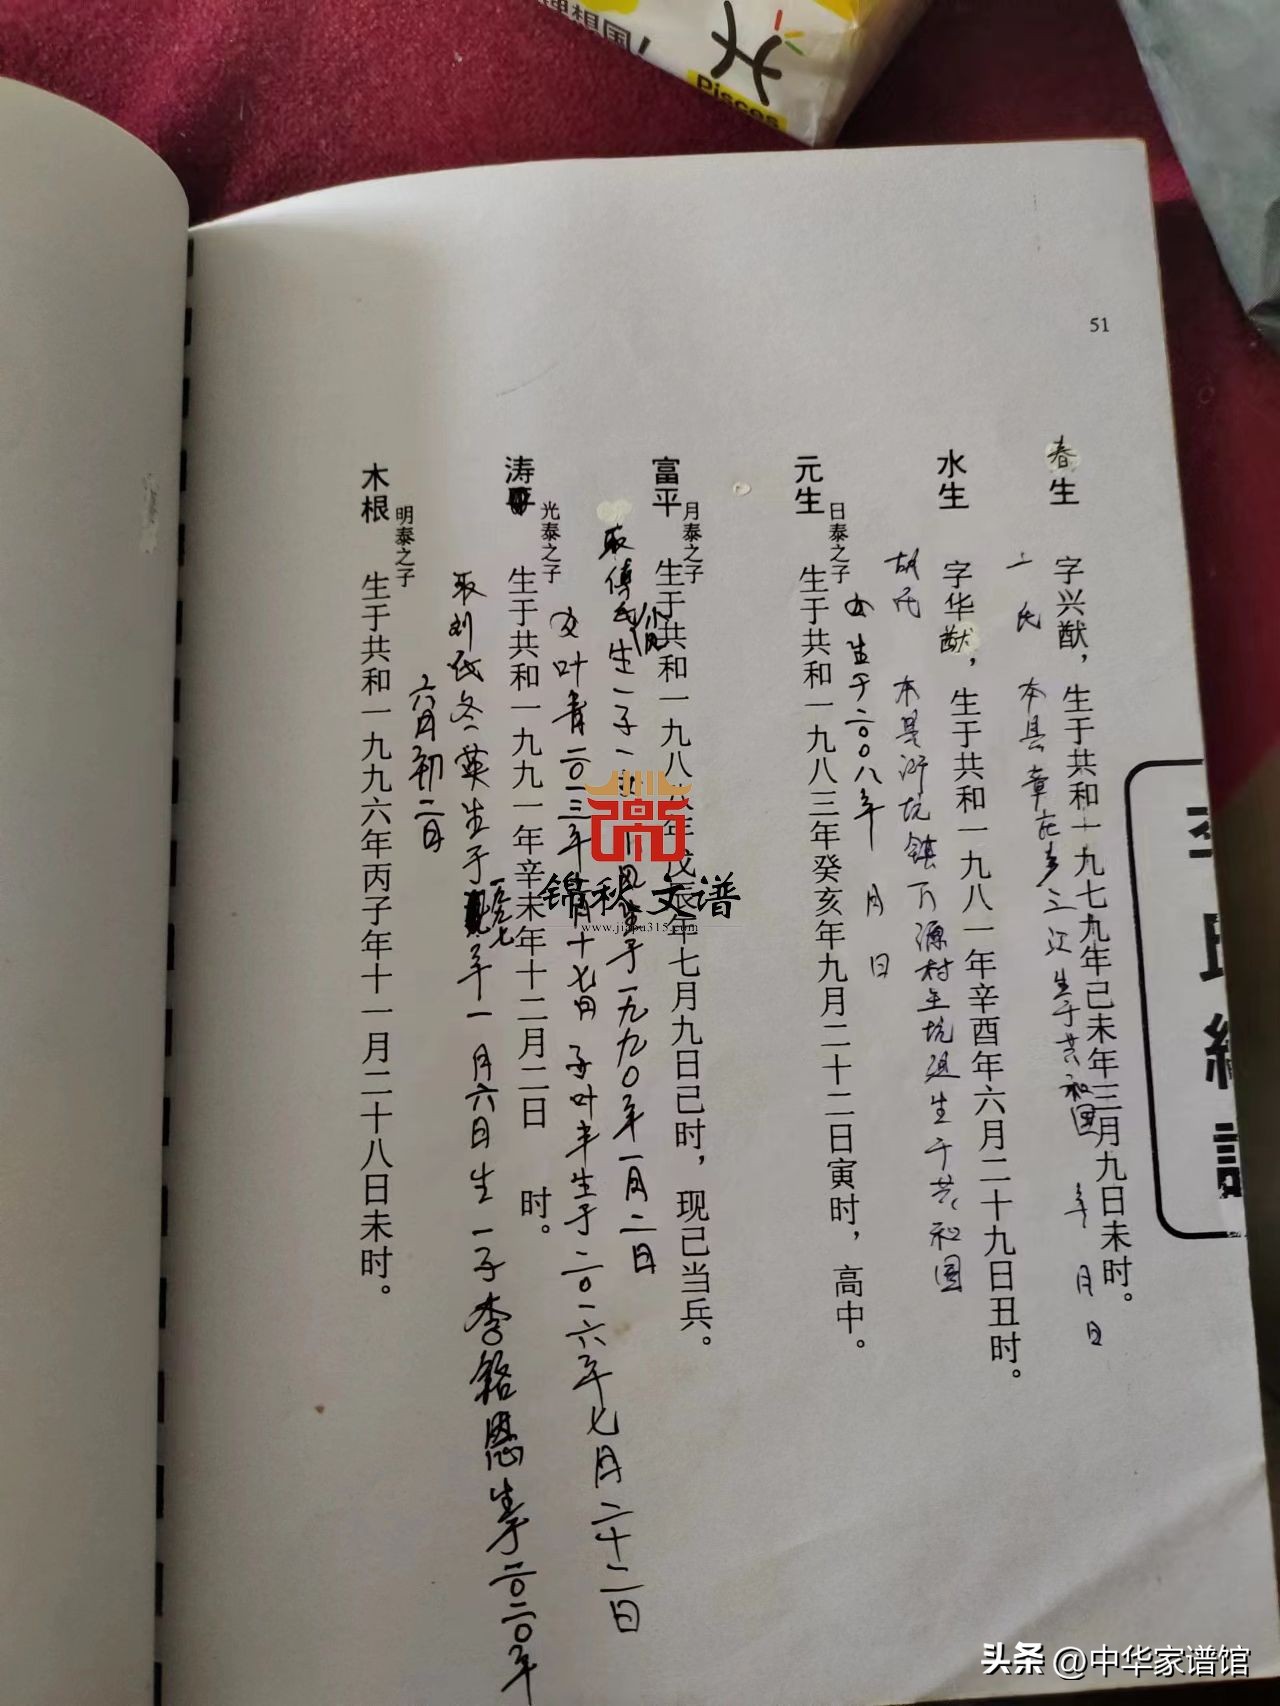 Pisces
51
李氏
春生
字兴猷，生于共和一九七九年己未年三月九日未时。
氏 本县章 三江生于共和国 年 月 日
水生
字华猷，生于共和一九八一年辛酉年六月二十九日丑时。
胡氏 本县 坑镇万源村 坑 生于共和国
元生
日泰之子
生于共和一九八三年癸亥年九月二十二日寅时，高中。
女生于二00八年 月 日
富平
月泰之子
生于共和一九八八年戊辰年七月九日己时，现已当兵。
取傅氏小凤生一子一女 生于一九九0年一月二日
女叶青二0一三年 月十七日 子叶丰生于二0一六年七月二十二日
涛
光泰之子
生于共和一九九一年辛未年十二月二日 时。
取刘氏冬英生于一九九七年一月六日生一子李铭恩生于二0二0年
六月初二日
木根
明泰之子
生于共和一九九六年丙子年十一月二十八日未时。
锦秋文谱
www.jiapu315.com
头条 @中华家谱馆